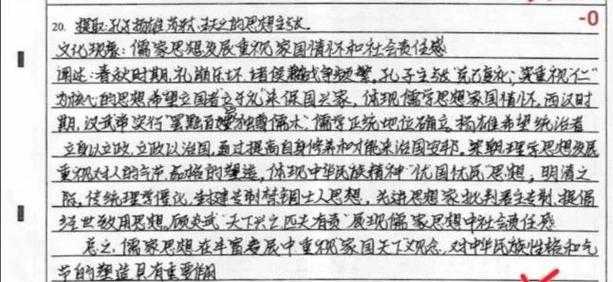 -0
20. 提取:孔子、扬雄、朱熹、顾炎武的思想主张。
文化现象:儒家思想发展重视家国情怀和社会责任感
阐述:春秋时期,礼崩乐坏,诸侯战争频繁,孔子主张"克己复礼";以"仁"
为核心的思想希望立国者立于礼来保国兴家,体现儒学思想家国情怀,西汉时
期,汉武帝实行"罢黜百家,独尊儒术",儒学正统地位确立,扬雄希望统治者
立身以立政,立政以治国,通过提高自身修养和才能来治国安邦。宋朝理学思想发展
重视对人的气节品格的塑造,体现中华民族精神"忧国忧民"思想,明清之
际,传统理学僵化,封建专制禁锢士人思想,先进思想家批判君主专制,提倡
经世致用思想,顾炎武"天下兴亡匹夫有责"展现儒家思想中社会责任感
总之,儒家思想在丰富发展中重视家国天下观念,对中华民族性格和气
节的塑造具有重要作用